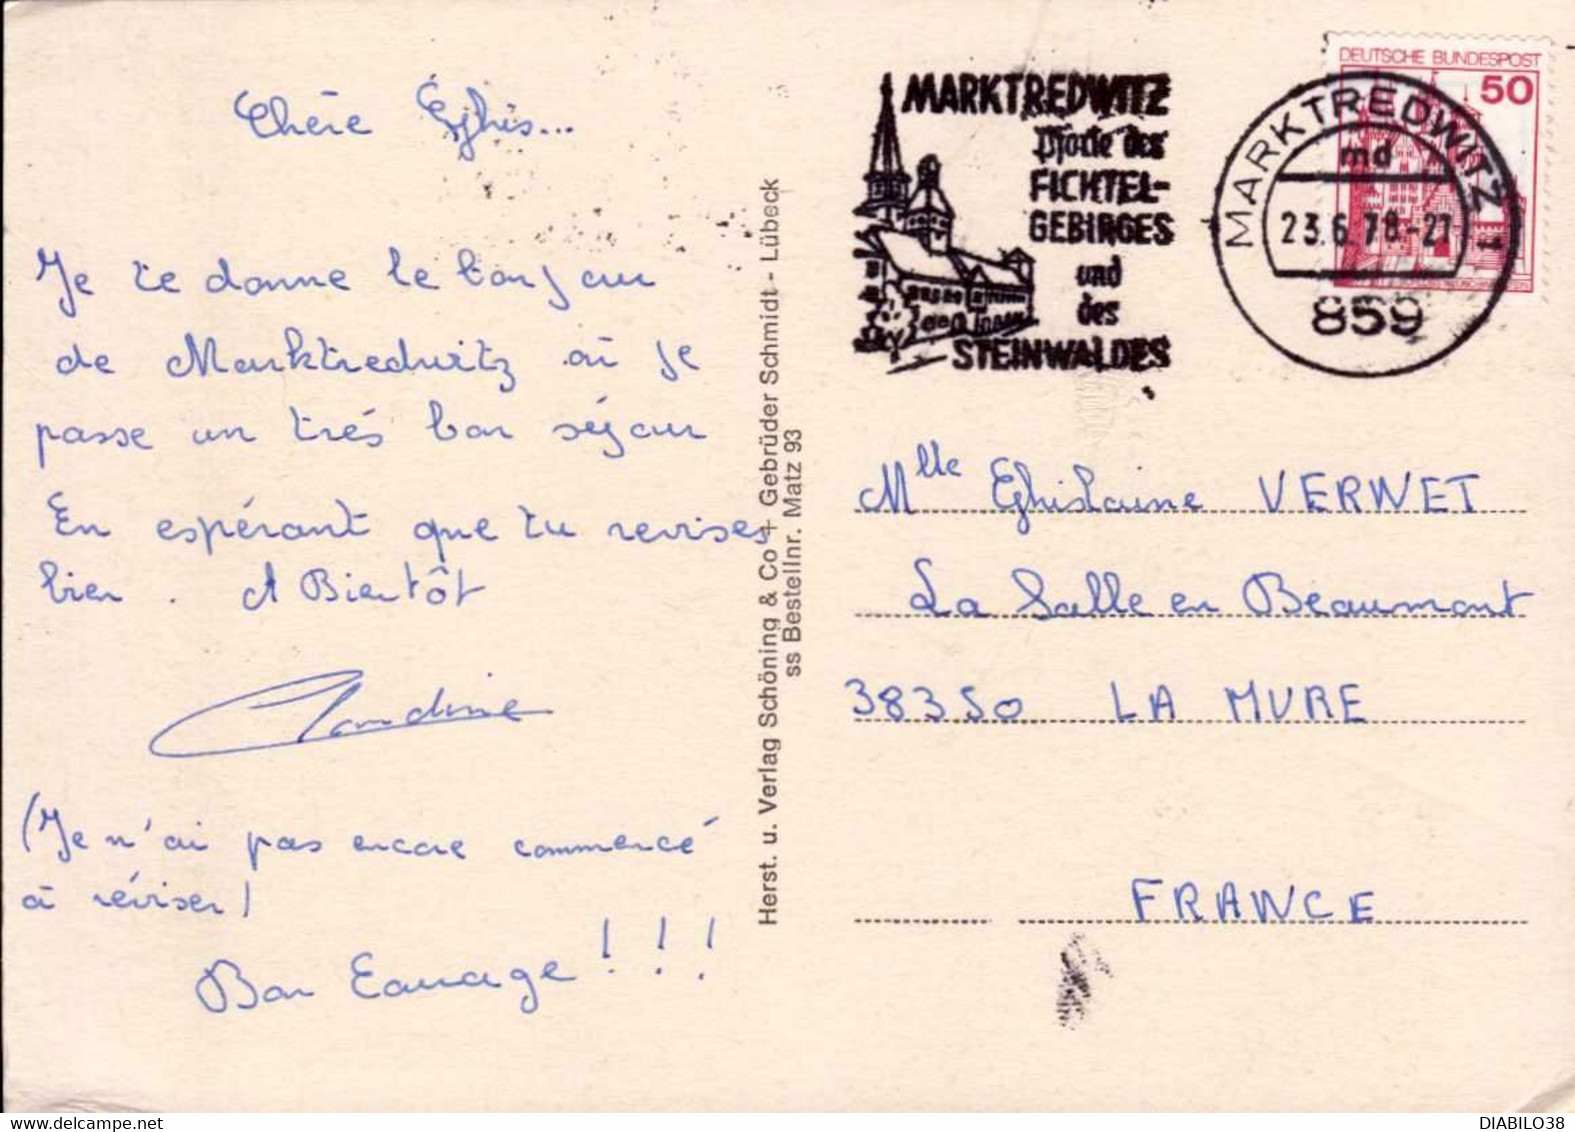 Chère Ghis...
Je te donne le bonjour
de Marktredwitz où je
passe un très bon séjour
En espérant que tu revises
bien. A Bientôt
Claudine
(Je n'ai pas encore commencé
à réviser)
Bon Courage!!!
Herst. u. Verlag Schöning & Co + Gebrüder Schmidt - Lübeck
ss Bestellnr. Matz 93
MARKTREDWITZ
Pforte des
FICHTEL-
GEBIRGES
und
des
STEINWALDES
DEUTSCHE BUNDESPOST
50
MARKTREDWITZ 1
md
23.6.78.-21
859
Mlle Ghislaine VERWET
La Salle en Beaumont
38350 LA MURE
FRANCE
DIABILO38